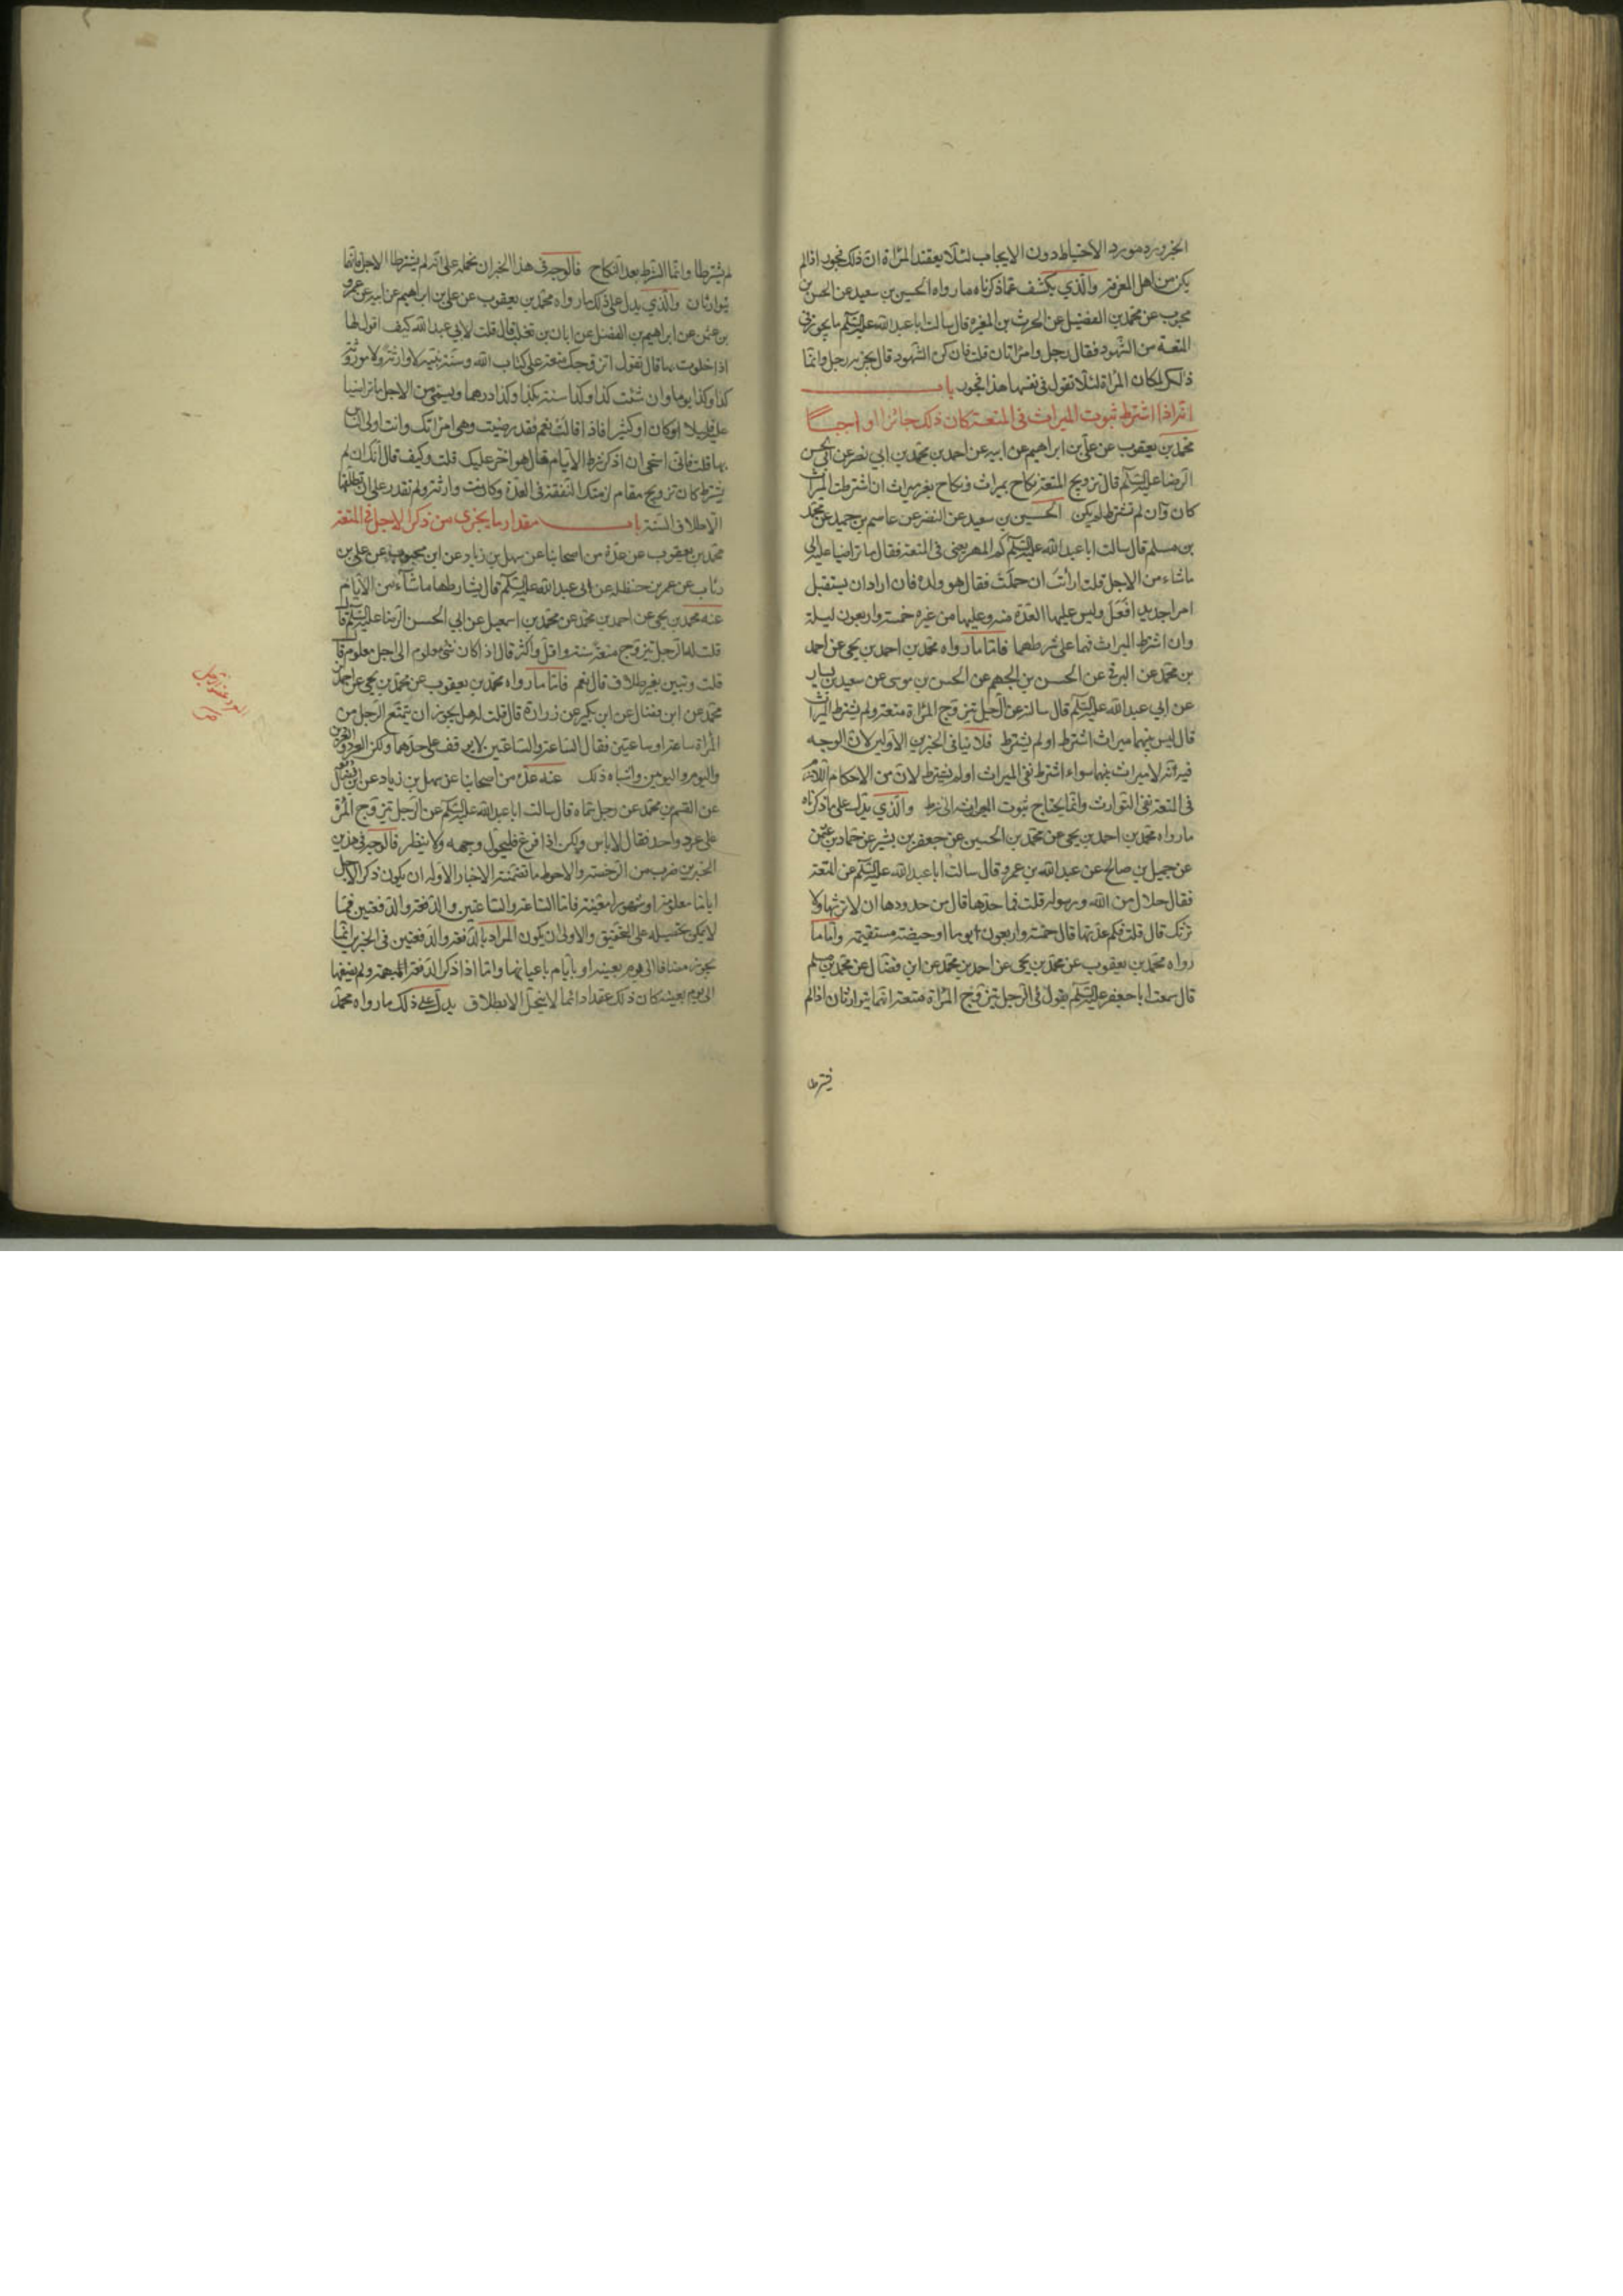 الخبر ورد مورد الاحتياط دون الايجاب لئلا يعتقد المرأة ان ذلك فجور اذا لم
يكن من اهل المعرفة والذي يكشف عما ذكرناه ما رواه الحسين بن سعيد عن الحسن بن
محبوب عن محمد بن الفضيل عن الحرث بن المغيرة قال سالت ابا عبد الله عليه السلم ما يجوز في
المتعة من الشهود فقال رجل وامراتان قلت فان كره الشهود قال يجزيه رجل وانما
ذلك لمكان المرأة لئلا تقول في نفسها هذا فجور باب
انه اذا اشترط ثبوت الميراث في المتعة كان ذلك جائزا واجبا
محمد بن يعقوب عن علي بن ابراهيم عن ابيه عن احمد بن محمد بن ابي نصر عن ابي الحسن
الرضا عليه السلم قال تزويج المتعة نكاح بميراث ونكاح بغير ميراث ان اشترطت الميراث
كان وان لم تشترط لم يكن الحسين بن سعيد عن النضر عن عاصم بن حميد عن محمد
بن مسلم قال سالت ابا عبد الله عليه السلم كم المهر يعني في المتعة فقال ما تراضيا عليه الى
ماشاء من الاجل قلت ارأت ان حملت فقال هو ولده فان اراد ان يستقبل
امرا جديدا فعل وليس عليها العدة منه وعليها من غيره خمسة واربعون ليلة
وان اشترط الميراث فهما على شرطهما فاما ما رواه محمد بن احمد بن يحيى عن احمد
بن محمد عن البرقي عن الحسن بن الجهم عن الحسن بن موسى عن سعيد بن يسار
عن ابي عبد الله عليه السلم قال سالته عن الرجل يتزوج المرأة متعة ولم يشترط الميراث
قال ليس بينهما ميراث اشترط او لم يشترط فلا ينافي الخبرين الاولين لان الوجه
فيه انه لا ميراث بينهما سواء اشترط نفي الميراث او لم يشترط لان من الاحكام اللازمة
في المتعة نفي التوارث وانما يحتاج ثبوت الميراث الى شرط والذي يدل على ما ذكرناه
ما رواه محمد بن احمد بن يحيى عن محمد بن الحسين عن جعفر بن بشير عن حماد بن عثمن
عن جميل بن صالح عن عبد الله بن عمرو قال سالت ابا عبد الله عليه السلم عن المتعة
فقال حلال من الله ورسوله قلت فما حدها قال من حدودها ان لا ترثها ولا
ترثك قال قلت فكم عدتها قال خمسة واربعون يوما او حيضة مستقيمة واما ما
رواه محمد بن يعقوب عن محمد بن يحيى عن احمد بن محمد عن ابن فضال عن محمد بن مسلم
قال سمعت ابا جعفر عليه السلم يقول في الرجل يتزوج المرأة متعة انهما يتوارثان اذا لم
يشترطا
لم يشترطا وانما الشرط بعد النكاح فالوجه في هذا الخبر ان نحمله على انه لم يشترطا الاجل فانهما
يتوارثان والذي يدل على ذلك ما رواه محمد بن يعقوب عن علي بن ابراهيم عن ابيه عن عمرو
بن عثمن عن ابراهيم بن الفضل عن ابان بن تغلب قال قلت لابي عبد الله كيف اقول لها
اذا خلوت بها قال تقول اتزوجك متعة على كتاب الله وسنة نبيه لا وارثة ولا موروثة
كذا وكذا يوما وان شئت كذا وكذا سنة بكذا وكذا درهما ويسمى من الاجل ما تراضيا
عليه قليلا كان او كثيرا فاذا قالت نعم فقد رضيت وهي امراتك وانت اولى الناس
بها قلت فاني استحي ان اذكر شرط الايام فقال هو اضر عليك قلت وكيف قال انك ان لم
يشترط كان تزويج مقام لزمتك النفقة في العدة وكانت وارثة ولم تقدر على ان تطلقها
الا طلاق السنة باب مقدار ما يجزى من ذكر الاجل في المتعة
محمد بن يعقوب عن عدة من اصحابنا عن سهل بن زياد عن ابن محبوب عن علي بن
رئاب عن عمر بن حنظلة عن ابى عبد الله عليه السلم قال يشارطها ماشاء من الايام
عنه محمد بن يحيى عن احمد بن محمد عن محمد بن اسمعيل عن ابي الحسن الرضا عليه السلم قال
قلت له الرجل يتزوج متعة سنة واقل واكثر قال اذا كان شئ معلوم الى اجل معلوم قال
قلت وتبين بغير طلاق قال نعم فاما ما رواه محمد بن يعقوب عن محمد بن يحيى عن احمد بن
محمد عن ابن فضال عن ابن بكير عن زرارة قال قلت له هل يجوز ان يتمتع الرجل من
المرأة ساعة او ساعتين فقال الساعة والساعتين لا يوقف على حدهما ولكن العرد والعردين
واليوم واليومين واشباه ذلك عنه عدة من اصحابنا عن سهل بن زياد عن ابن فضال
عن القسم بن محمد عن رجل سماه قال سالت ابا عبد الله عليه السلم عن الرجل يتزوج المرأة
على عرد واحد فقال لا باس ولكن اذا فرغ فليحول وجهه ولا ينظر فالوجه في هذين
الخبرين ضرب من الرخصة والاحوط ما تضمنته الاخبار الاوله ان يكون ذكر الاجل
اياما معلومة او شهورا معينة فاما الساعة والساعتين والدفعة والدفعتين فمما
لا يمكن تحصيله على التحقيق والاولى ان يكون المراد بالدفعة والدفعتين في الخبرين انما
يجوز مضافا الى يوم بعينه او بايام باعيانها واما اذا ذكر الدفعة المبهمة ولم يضفها
الى يوم بعينه كان ذلك عقدا دائما لا ينحل الا بطلاق يدل على ذلك ما رواه محمد